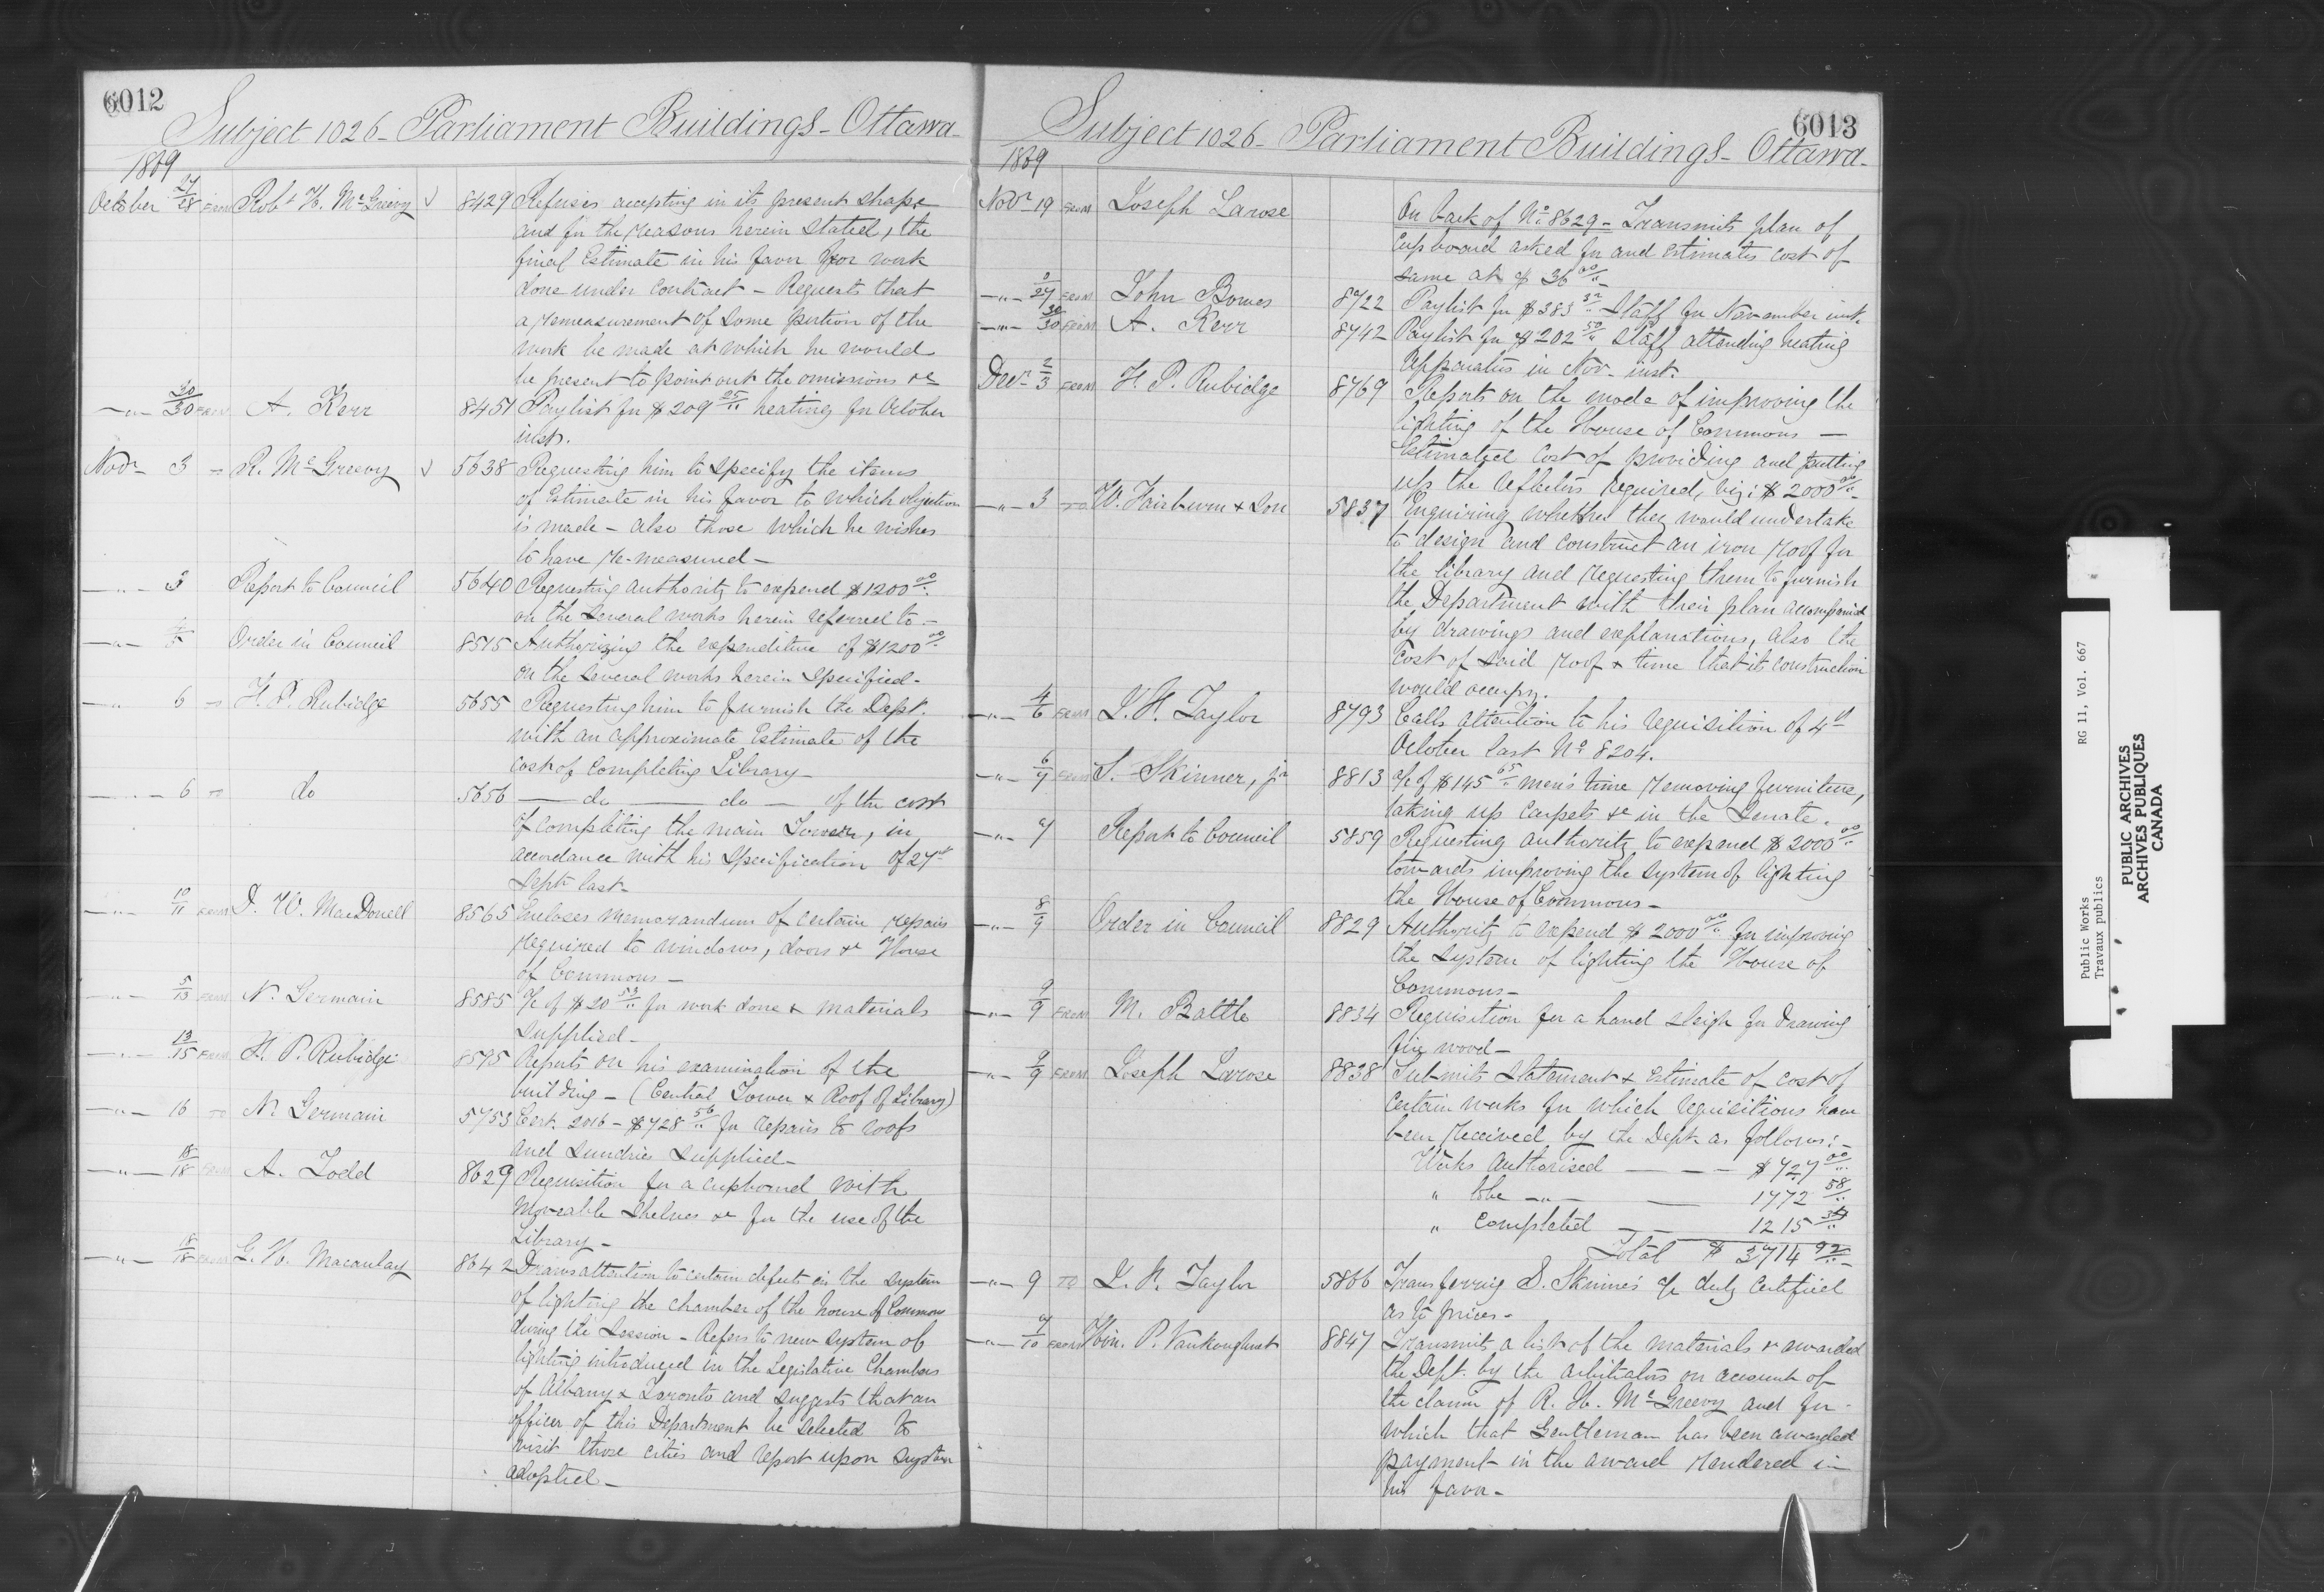 6012
Subject 1026 - Parliament Buildings - Ottawa -
1869
October 27/28 FROM Robt H. McGreevy √ 8429 Refuses accepting in its present shape
and for the reasons herein stated, the
final Estimate in his favor for work
done under contract - Requests that
a remeasurement of some portion of the
work be made at which he would
be present to point out the omissions &c
-"- 30/30 FROM A. Kerr 8451 Paylist for $209 25/" heating for October
inst.
Novr 3 - R. McGreevy √ 5638 Requesting him to specify the items
of Estimate in his favor to which objection
is made - also those which he wishes
to have re-measured -
-"- 3 Report to Council 5640 Requesting authority to expend $1200 00/"
on the several works herein referred to -
-"- 4/5 Order in Council 8515 Authorizing the expenditure of $1200 00/"
on the several works herein specified -
-"- 6 TO F. P. Rubidge 5655 Requesting him to furnish the Dept.
with an approximate Estimate of the
cost of completing Library -
-"- 6 TO do 5656 - do - do - of the cost
of completing the main Tower, in
accordance with his specification of 27th
Septr last -
-"- 10/11 FROM D. W. MacDonell 8565 Encloses memorandum of certain repairs
required to windows, doors &c House
of Commons -
-"- 5/13 FROM N. Germain 8585 a/c of $20 53/" for work done & materials
supplied -
-"- 13/15 FROM F. P. Rubidge 8595 Reports on his examination of the
building - (Central Tower & Roof of Library)
-"- 16 TO N. Germain 5753 Cert. 2016 - $728 56/" for repairs to roofs
and sundries supplied -
-"- 18/18 FROM A. Todd 8629 Requisition for a cupboard with
moveable shelves &c for the use of the
Library -
-"- 18/18 FROM G. H. Macaulay 8642 Draws attention to certain defects in the system
of lighting the chamber of the house of Commons
during the Session - Refers to new system of
lighting introduced in the Legislative Chambers
of Albany & Toronto and suggests that an
officer of this Department be selected to
visit those cities and report upon system
adopted -
6013
Subject 1026 - Parliament Buildings - Ottawa -
1869
Novr 19 FROM Joseph Larose On back of No 8629 - Transmits plan of
cupboard asked for and estimates cost of
same at $36 00/" -
-"- 27 FROM John Bowes 8722 Paylist for $383 32/" Staff for November inst.
-"- 30/30 FROM A. Kerr 8742 Paylist for $202 50/" Staff attending heating
apparatus in Nov. inst.
Decr 2/3 FROM F. P. Rubidge 8769 Reports on the mode of improving the
lighting of the House of Commons -
Estimated cost of providing and putting
up the reflectors required, viz: $2000 00/" -
-"- 3 TO W. Fairburn & Son 5837 Enquiring whether they would undertake
to design and construct an iron roof for
the library and requesting them to furnish
the Department with their plan accompanied
by drawings and explanations, also the
cost of said roof & time that it construction
would occupy.
-"- 4/6 FROM J. H. Taylor 8793 Calls attention to his requisition of 4th
October last No 8204.
-"- 6/7 FROM S. Skinner, jr 8813 a/c of $145 65/" men's time removing furniture,
taking up carpets &c in the Senate.
-"- 7 Report to Council 5859 Requesting authority to expend $2000 00/"
towards improving the system of lighting
the House of Commons -
-"- 8/9 Order in Council 8829 Authority to expend $2000 00/" for improving
the system of lighting the House of
Commons -
-"- 9/9 FROM M. Battle 8834 Requisition for a hand sleigh for drawing
fire wood -
-"- 9/9 FROM Joseph Larose 8838 Submits statement & Estimate of cost of
certain works for which requisitions have
been received by the Dept. as follows: -
Works Authorised - - - $727 00/"
" to be -"- - 1772 58/"
" Completed - - 1215 34/"
Total $3714 92/" -
-"- 9 TO J. H. Taylor 5866 Transferring S. Skinner's a/c duly certified
as to prices -
-"- 7/10 FROM Hon. P. Vankoughnet 8847 Transmits a list of the materials & awarded
the Dept. by the arbitrators on account of
the claim of R. H. McGreevy and for
which that Gentleman has been awarded
payment in the award rendered in
his favor -
Public Works RG 11, Vol. 667
Travaux publics
PUBLIC ARCHIVES
ARCHIVES PUBLIQUES
CANADA